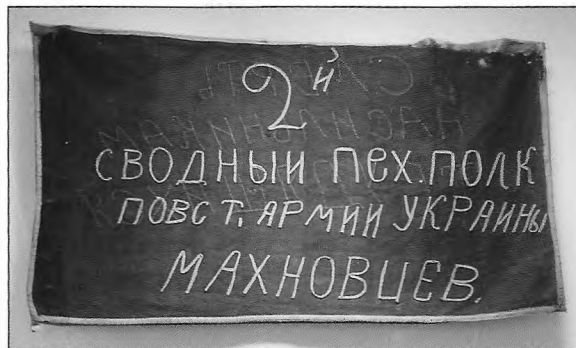 2й
СВОДНЫЙ ПЕХ. ПОЛК
ПОВСТ. АРМИИ УКРАИНЫ
МАХНОВЦЕВ.